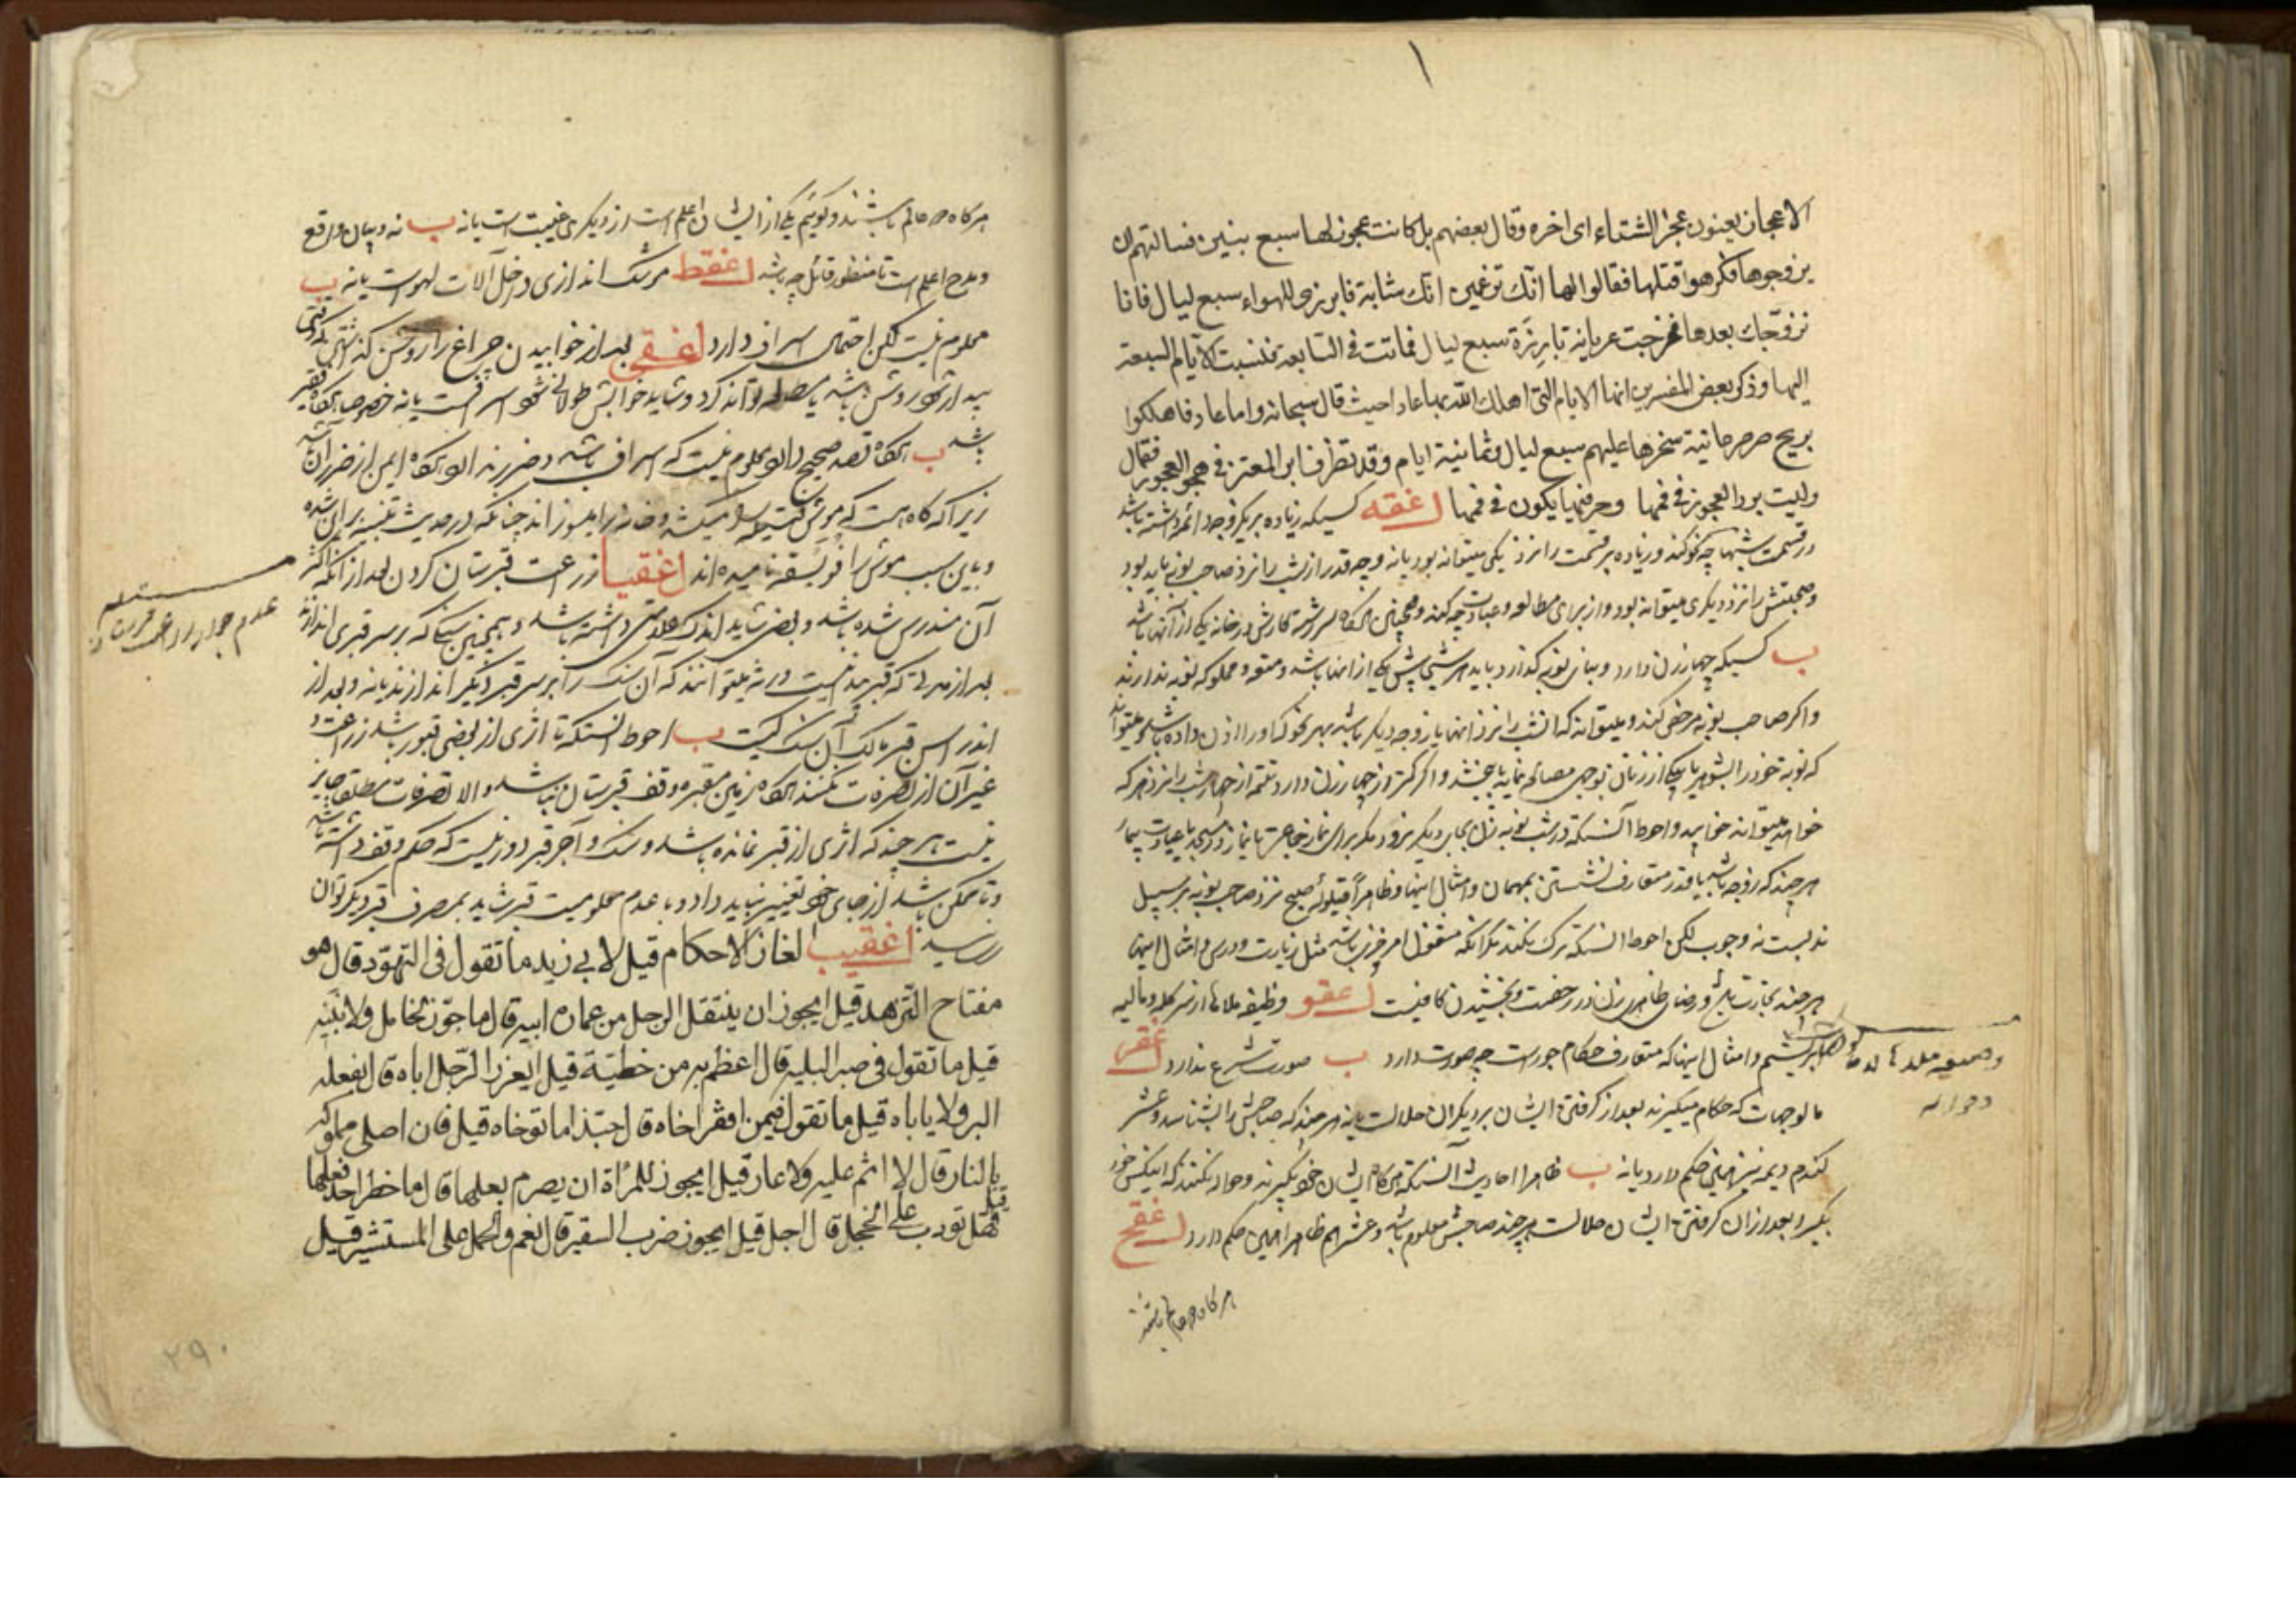 الاعجاز يعنون عجز الشتاء اى اخره وقال بعضهم بل كانت عجوز لها سبع بنين فسالتهم ان
يزوجوها فكرهوا قتلها فقالوا لها انك تزعمين انك شابة فابرزى للهواء سبع ليال فانا
نزوّجك بعدها فخرجت عريانة بارزة سبع ليال فماتت فى السابعة فنسبت الايام السبعة
اليها وذكر بعض المفسرين انها الايام التى اهلك الله بها عادا حيث قال سبحانه واما عاد فاهلكوا
بريح صرصر عاتية سخرها عليهم سبع ليال وثمانية ايام وقد تظرف ابن المعتز فى هجو العجوز فقال
وليت برد العجوز فى فمها وحر فيما يكون فى فمها اغقه كسيكه زياده بر يك زوجه دائمه داشته باشد
در قسمت شبها چه كند و زياده بر قسمت را نزد يكى ميتواند بود يا نه و چه قدر از شب را نزد صاحب نوبه بايد بود
را نزد ديگرى ميتواند بود و از براى مطالعه و عبادت چه كند و همچنين هرگاه كارش در خانه يكى از آنها باشد
ب كسيكه چهار زن دارد و بناى نوبه گذارد بايد هر شبى پيش يكى از اينها باشد و متعه و مملوكه نوبه ندارند
واكر صاحب نوبه مرخص كند و ميتواند كه انشب را نزد اينها يا زوجه ديگر باشد بهر نحو كه او را اذن داده باشد و ميتواند
كه نوبه خود را بشوهر يا بيكى از زنان بوجهى مصالحه نمايد يا ببخشد و اكر كمتر از چهار زن دارد تتمه از چهار شب را نزد هر كه
خواهد ميتواند خوابيد و احوط آنستكه در شب نوبه زن بجاى ديگر نرود مگر براى نماز جماعت يا نماز در مسجد يا عيادت بيمار
هر چند كه زوجه باشد يا قدر متعارف نشستن بمهمان و امثال اينها و ظاهراً قيلوله صبح نزد صاحب نوبه بر سبيل
ندبست نه وجوب لكن احوط انستكه ترك نكند مگر انكه مشغول امر خير باشد مثل زيارت و درس و امثال اينها
هر چند تجارت باشد و رضاى ظاهرى زن در رخصت و بخشيدن كافيست اغقو وظيفه ملاها از سر گله و ماليه
ابريشم و امثال اينها كه متعارف حكام جورست چه صورت دارد ب صورت شرع ندارد اغقز
مالوجهات كه حكام ميگيرند بعد از گرفتن ايشان بر ديگران حلالست يا نه هر چند كه صاحبش را بشناسد و عشر
گندم ديمه نيز همين حكم دارد يا نه ب ظاهر احاديث آنستكه حكام ايشان خود بگيرند و حواله نكنند كه اينكس خود
بگيرد و بعد از ان گرفتن ايشان حلالست هر چند صاحبش معلوم باشد و عشر هم ظاهرا همين حكم دارد اغقح
هركاه دو عالم باشند
وظيفه ملاها
هركاه دو عالم باشند و گوئيم يكى از ايشان اعلم است از ديگرى غيبت است يا نه ب نه و بيان واقع
و مدح اعلم است تا منظور قائل چه باشد اغقط انداز‌ى داخل آلات لهو است يا نه ب
معلوم نيست لكن احتمال اسراف دارد اغقى بعد از خوابيدن چراغ را روشن كند
بيدار شود روشن باشد يا مطالعه تواند كرد و شايد خوابش طولانى شود اسرافست يا نه خصوصا هرگاه فقير
باشد ب هرگاه قصد صحيح دارد معلوم نيست كه اسراف باشد و ضرر ندارد هرگاه ايمن از ضرر آن باشد
زيرا كه گاه هست كه موش فتيله را ميكشد و خانه را ميسوزاند چنانكه در حديث تنبيه بر ان شده
و باين سبب موش را فويسقه ناميده اند اغقيا زراعت قبرستان كردن بعد از انكه اكثر
آن مندرس شده باشد و بعض شايد اندك علامتى داشته باشد و همچنين سنگى كه بر سر قبرى اندازند
بعد از مدتى كه قبر مندرست ورثه ميتوانند كه آن سنگ را بر سر قبر ديگر اندازند يا نه و بعد از
اندراس قبر مالك آن سنگ كيست ب احوط انستكه تا اثرى از بعضى قبور باشد زراعت و
غير آن از تصرفات نكنند هرگاه زمين مقبره وقف قبرستان نباشد و الا تصرفات مطلقا جايز
نيست هر چند كه اثرى از قبر نمانده باشد و سنگ و آجر قبر دور نيست كه حكم وقف داشته باشد
و تا ممكن باشد از جاى خود تغيير نبايد داد و با عدم معلوميت قبر شايد بمصرف قبر ديگر توان
رسانيد اغقيب الغاز الاحكام قيل لابى زيد ما تقول فى التهوّد قال هو
مفتاح التزهد قيل ايجوز ان ينتقل الرجل من عمارة ابيه قال ما جوّز لخامل ولا نبيه
قيل ما تقول فى صبر البلية قال اعظم به من خطيئة قيل ايعزر الرجل اباه قال يفعله
البر ولا ياباه قيل ما تقول فيمن افقر اخاه قال حبّذا ما توخاه قيل فان اصلى مملوكه
بالنار قال لا اثم عليه ولا عار قيل ايجوز للمرأة ان يصرم بعلها قال ما حظر احد فعلها
قيل فهل تودب على الخجل قال اجل قيل ايجوز ضرب السفير قال نعم والحمل على المستشير قيل
٢٩٠